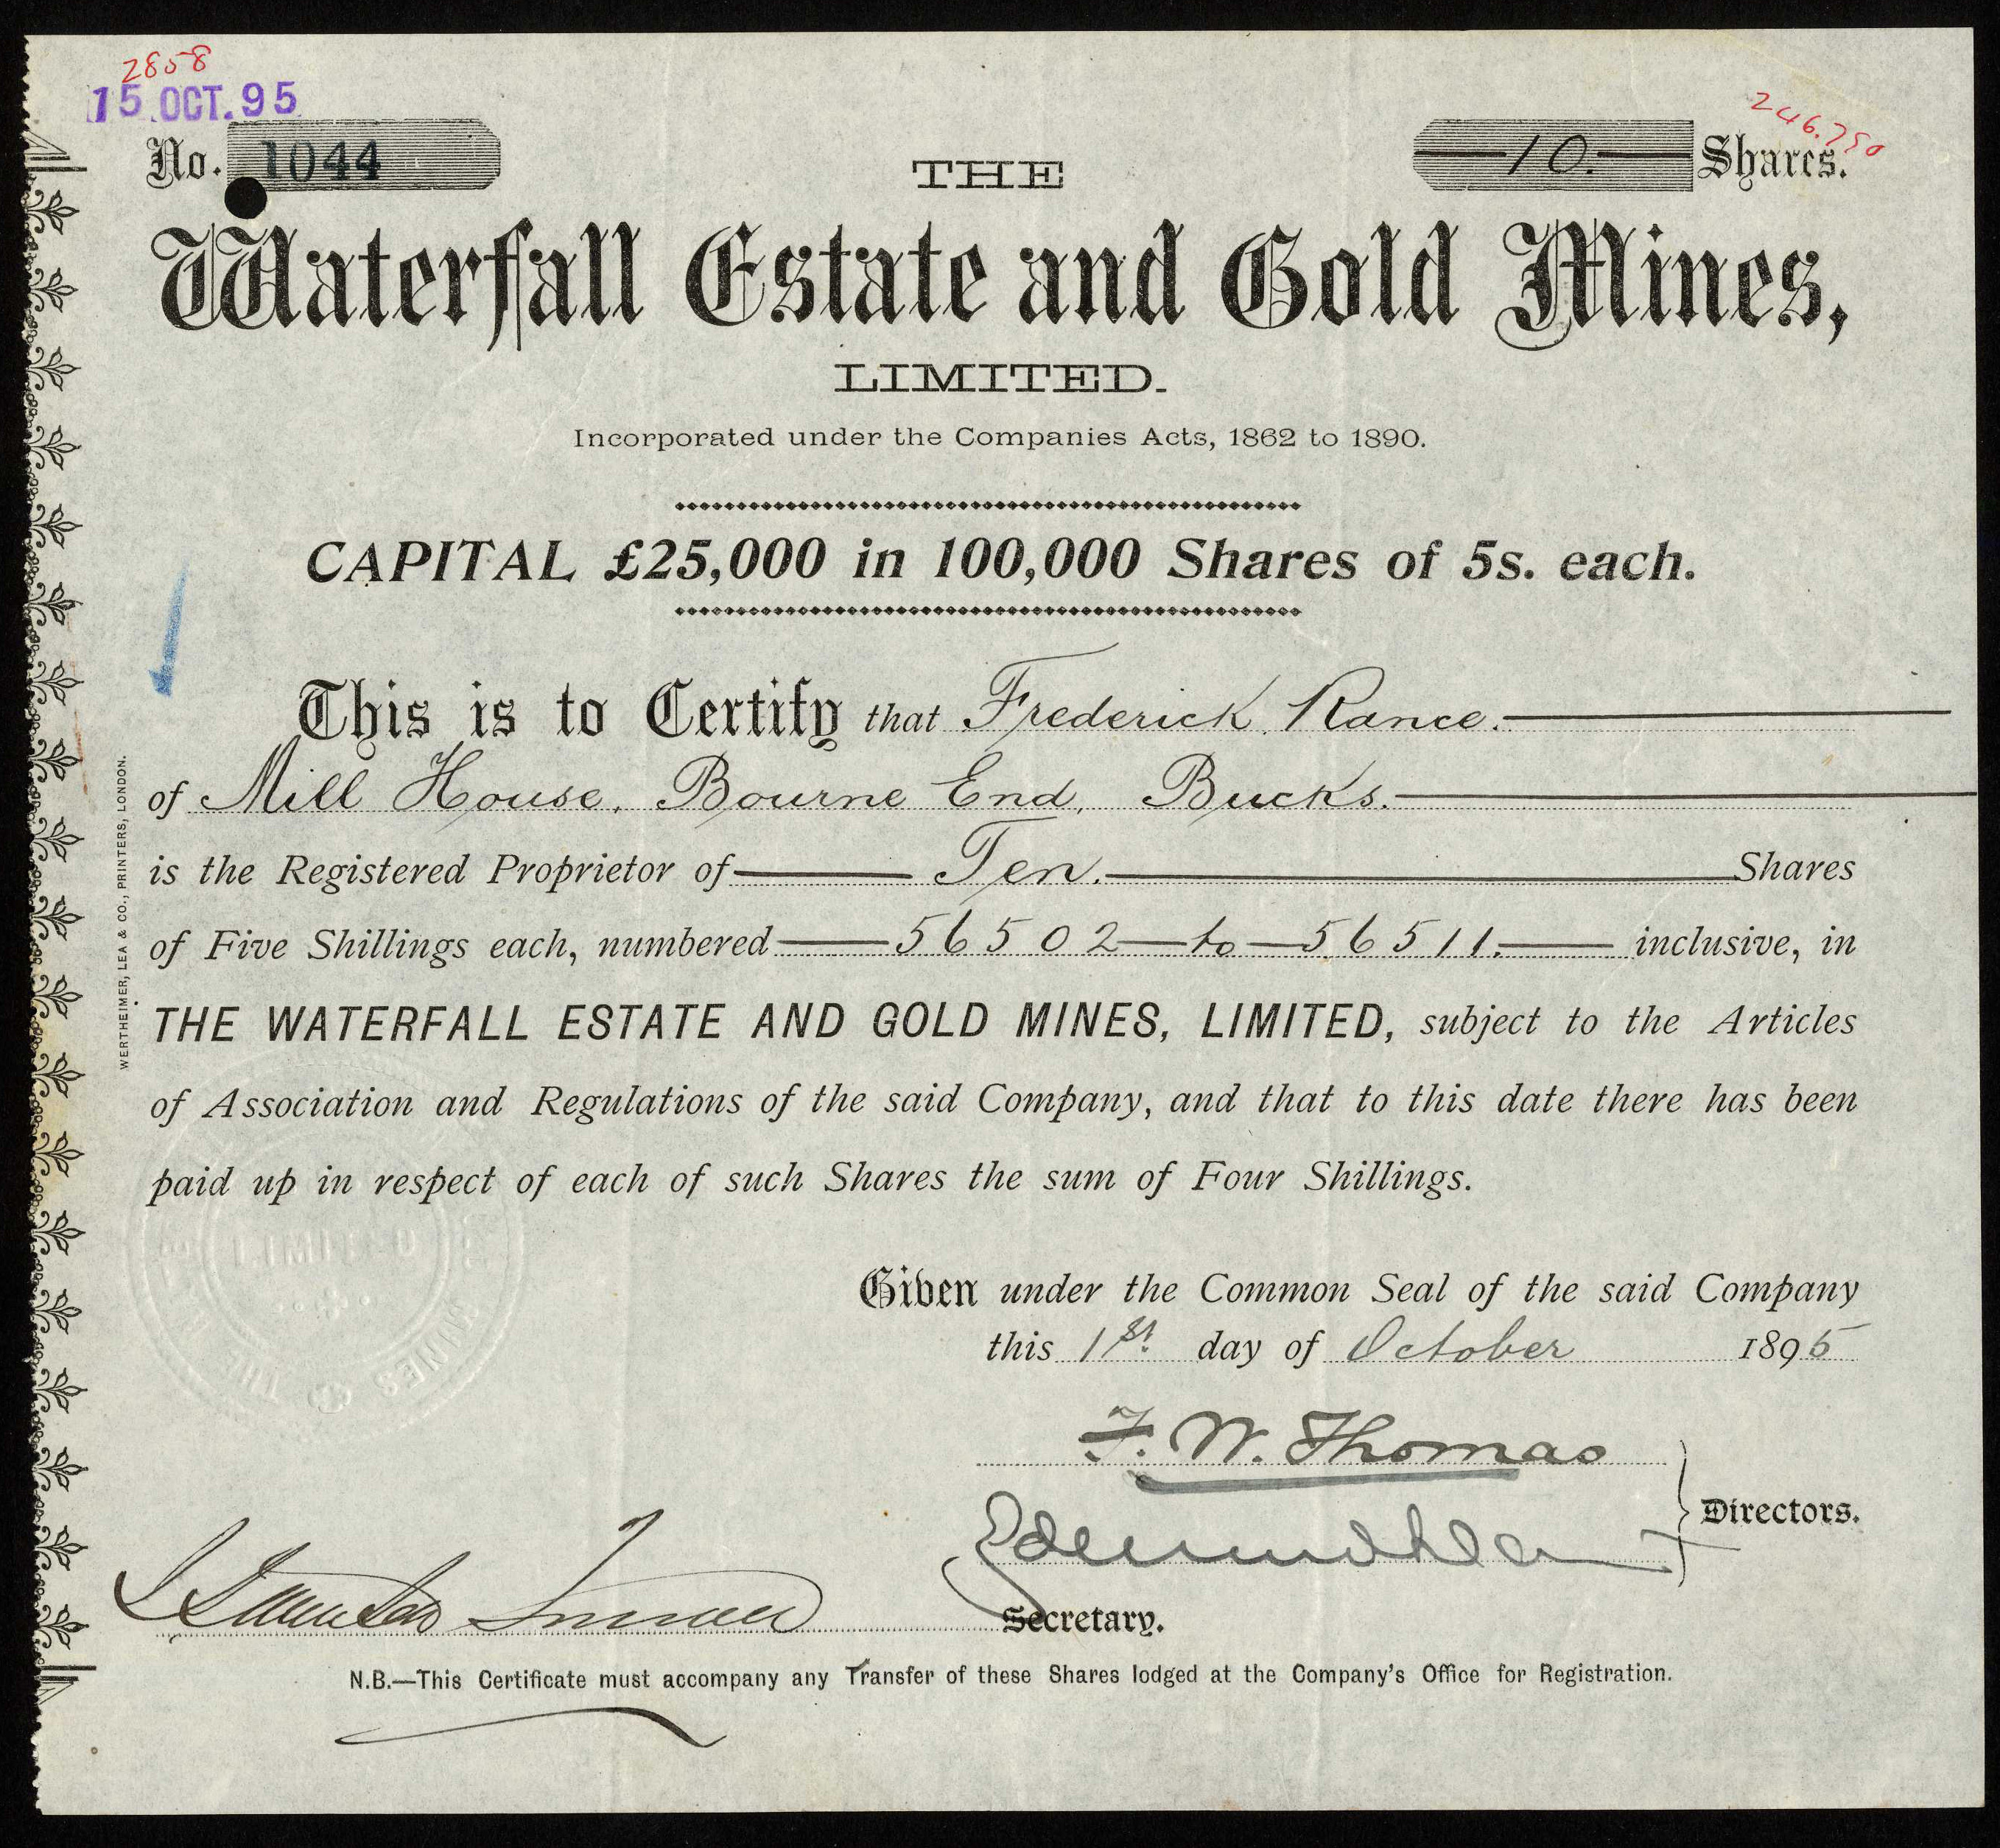 2858
15 OCT. 95
No. 1044
246.750
10. Shares.
THE
Waterfall Estate and Gold Mines,
LIMITED.
Incorporated under the Companies Acts, 1862 to 1890.
CAPITAL £25,000 in 100,000 Shares of 5s. each.
This is to Certify that Frederick Rance.
of Mill House, Bourne End, Bucks.
is the Registered Proprietor of Ten. Shares
of Five Shillings each, numbered 56502 to 56511. inclusive, in
THE WATERFALL ESTATE AND GOLD MINES, LIMITED, subject to the Articles
of Association and Regulations of the said Company, and that to this date there has been
paid up in respect of each of such Shares the sum of Four Shillings.
WERTHEIMER, LEA & CO., PRINTERS, LONDON.
LIMITED
MINES
THE
Given under the Common Seal of the said Company
this 1st day of October 1895
F. W. Thomas
Directors.
Secretary.
N.B.—This Certificate must accompany any Transfer of these Shares lodged at the Company's Office for Registration.